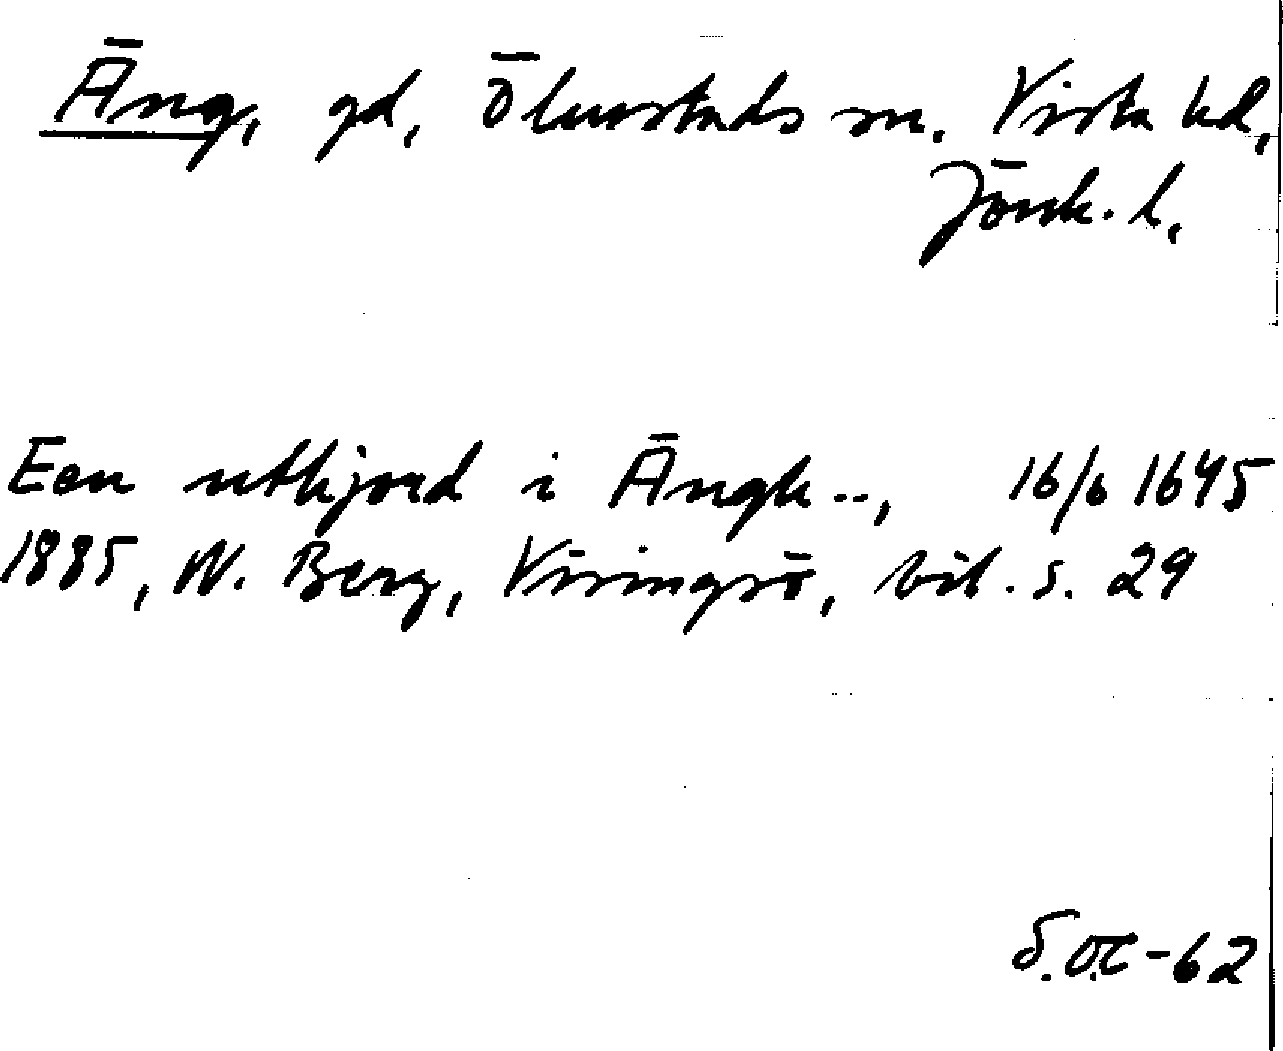 Äng, gd, Ölmstads sn. Vista hd,
Jönk. l,
Een uthjord i Ängh..., 16/6 1645
1885, W. Berg, Visingsö, bil. s. 29
-62